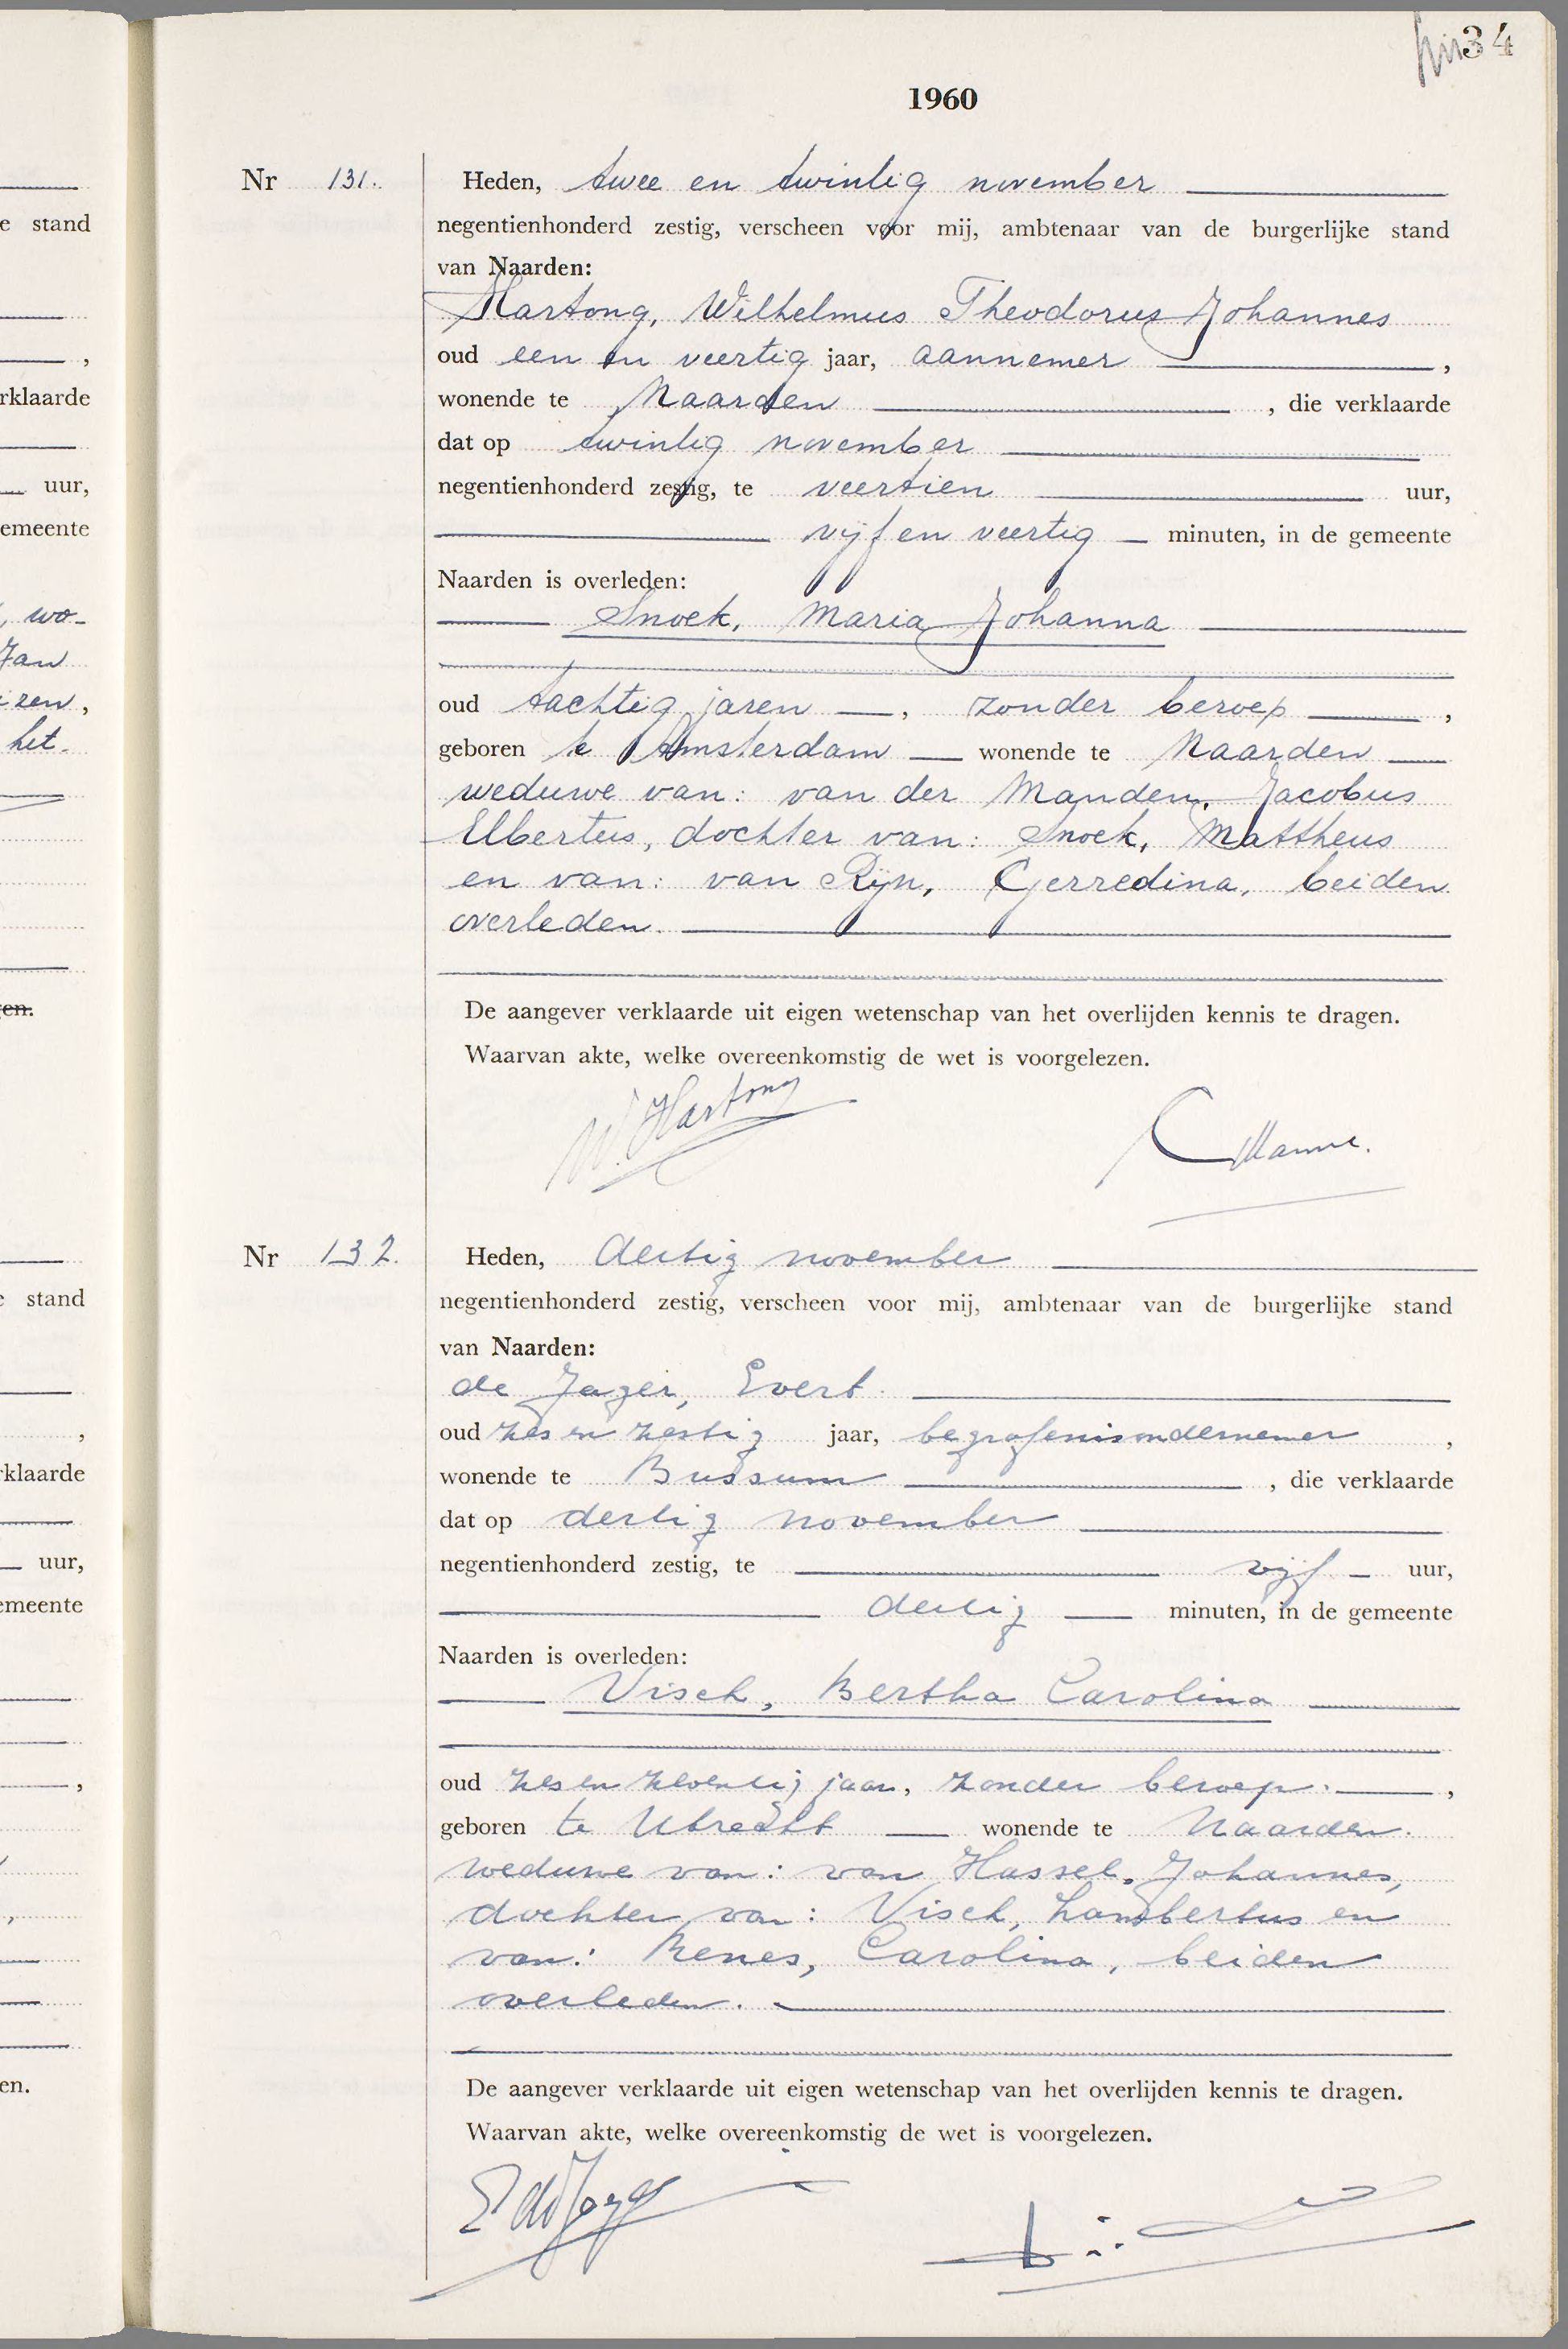 34
1960
Nr 131.
Heden, twee en twintig november
negentienhonderd zestig, verscheen voor mij, ambtenaar van de burgerlijke stand
van Naarden:
Hartong, Wilhelmus Theodorus Johannes
oud een en veertig jaar, aannemer ,
wonende te Naarden , die verklaarde
dat op twintig november
negentienhonderd zestig, te veertien uur,
vijf en veertig minuten, in de gemeente
Naarden is overleden:
Snoek, Maria Johanna
oud tachtig jaren , zonder beroep ,
geboren te Amsterdam wonende te Naarden
weduwe van: van der Manden, Jacobus
Elbertus, dochter van: Snoek, Mattheus
en van: van Rijn, Gerredina, beiden
overleden.
De aangever verklaarde uit eigen wetenschap van het overlijden kennis te dragen.
Waarvan akte, welke overeenkomstig de wet is voorgelezen.
W. Hartong
Nr 132.
Heden, dertig november
negentienhonderd zestig, verscheen voor mij, ambtenaar van de burgerlijke stand
van Naarden:
de Jager, Evert.
oud zes en zestig jaar, begrafenisondernemer ,
wonende te Bussum , die verklaarde
dat op dertig november
negentienhonderd zestig, te vijf uur,
dertig minuten, in de gemeente
Naarden is overleden:
Visch, Bertha Carolina
oud zes en zeventig jaar, zonder beroep. ,
geboren te Utrecht wonende te Naarden.
weduwe van: van Hassel, Johannes,
dochter van: Visch, Lambertus en
van: Benes, Carolina, beiden
overleden.
De aangever verklaarde uit eigen wetenschap van het overlijden kennis te dragen.
Waarvan akte, welke overeenkomstig de wet is voorgelezen.
E de Jager
e stand
,
rklaarde
uur,
emeente
, wo-
Jan
izen,
het.
en.
e stand
,
rklaarde
uur,
emeente
,
,
en.